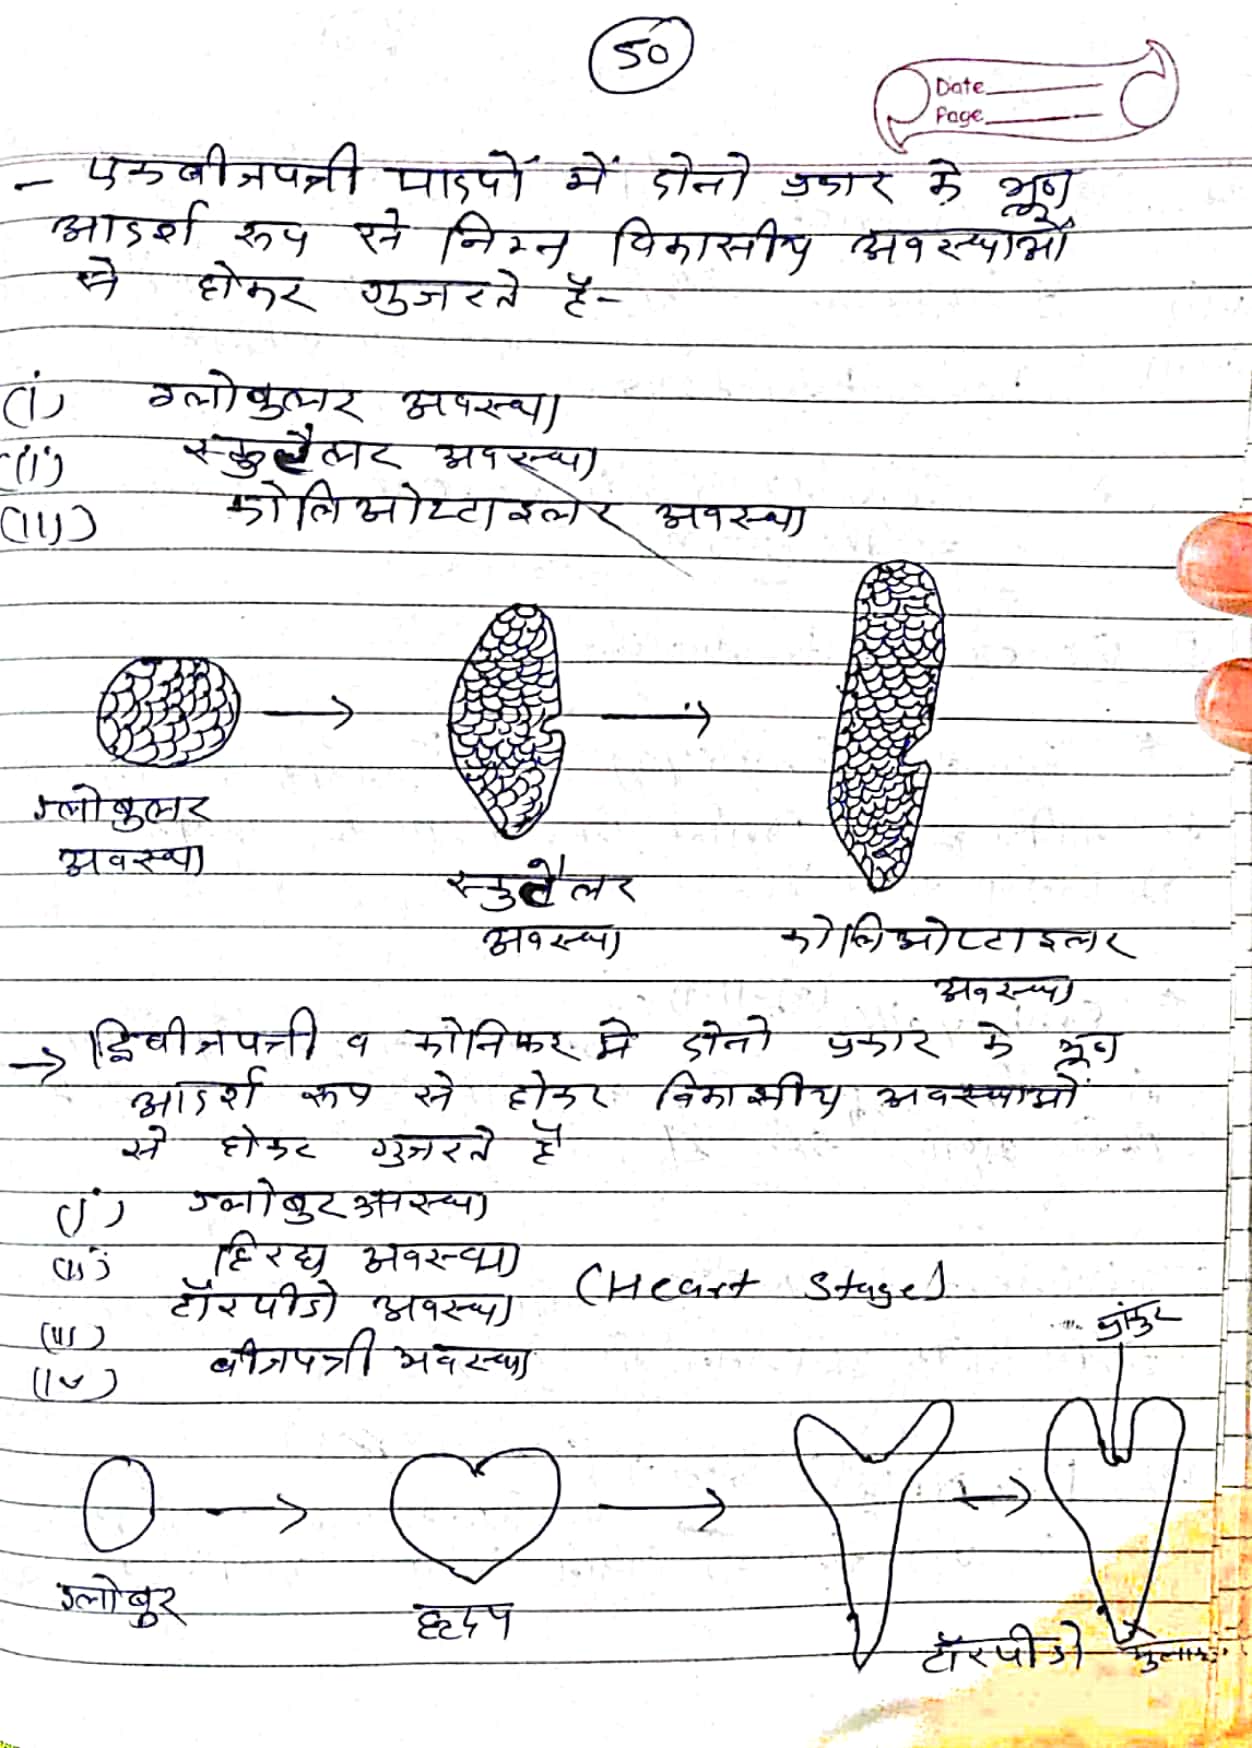 50
Date
Page
- एकबीजपत्री पादपों में दोनो प्रकार के भ्रूण
आदर्श रूप से निम्न विकासीय अवस्थाओं
से होकर गुजरते है-
(i) ग्लोबुलर अवस्था
(ii) स्कुटैलर अवस्था
(iii) कोलिओप्टाइलर अवस्था
ग्लोबुलर
अवस्था
स्कुटैलर
अवस्था
कोलिओप्टाइलर
अवस्था
→ द्विबीजपत्री व कोनिफर मे दोनो प्रकार के भ्रूण
आदर्श रूप से होकर विकासीय अवस्थाओं
से होकर गुजरते है
(i) ग्लोबुर अवस्था
(ii) हिरदय अवस्था (Heart Stage)
(iii) टॉरपीडो अवस्था
(iv) बीजपत्री अवस्था
प्रांकुर
ग्लोबुर
हृदय
टॉरपीडो